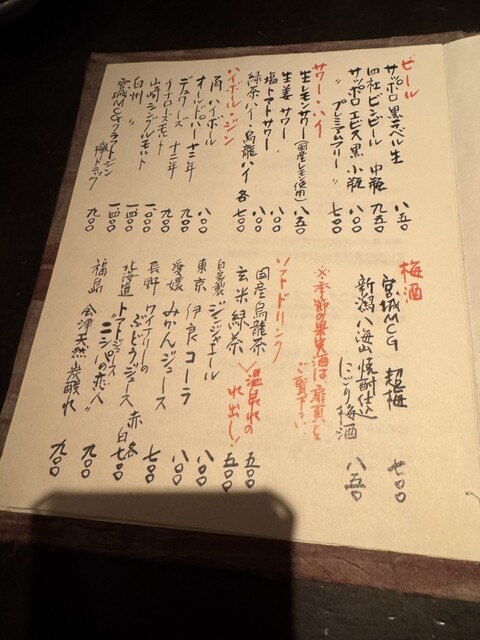 ビール
サッポロ黒ラベル生 八五〇
四社ビンビール 中瓶 九五〇
サッポロ エビス黒 小瓶 八〇〇
〃 プレミアムフリー 〃 七〇〇
サワー・ハイ
生レモンサワー(国産レモン使用) 八五〇
生姜サワー 八〇〇
塩トマトサワー 八〇〇
緑茶ハイ・烏龍ハイ 各 七〇〇
ハイボール・ジン
角ハイボール 八〇〇
オールドパー十二年 九〇〇
デュワーズ 十二年 九〇〇
イチローズモルト
山崎シングルモルト
白州 〃
宮城MCGクラフトジン 欅トニック 九〇〇
梅酒
宮城MCG 超梅 七〇〇
新潟八海山焼酎仕込
にごり梅酒 八五〇
※季節の果実酒は、扉頁を
ご覧下さい
ソフトドリンク
国産烏龍茶 五〇〇
玄米緑茶 五〇〇
温泉水の
水出し!
自家製ジンジャエール
東京 伊良コーラ 八〇〇
愛媛 みかんジュース 八〇〇
長野 ワイナリーの
ぶどうジュース 赤白各 七〇〇
北海道 トマトジュース
"ニシパの恋人" 九〇〇
福島 会津天然炭酸水 九〇〇